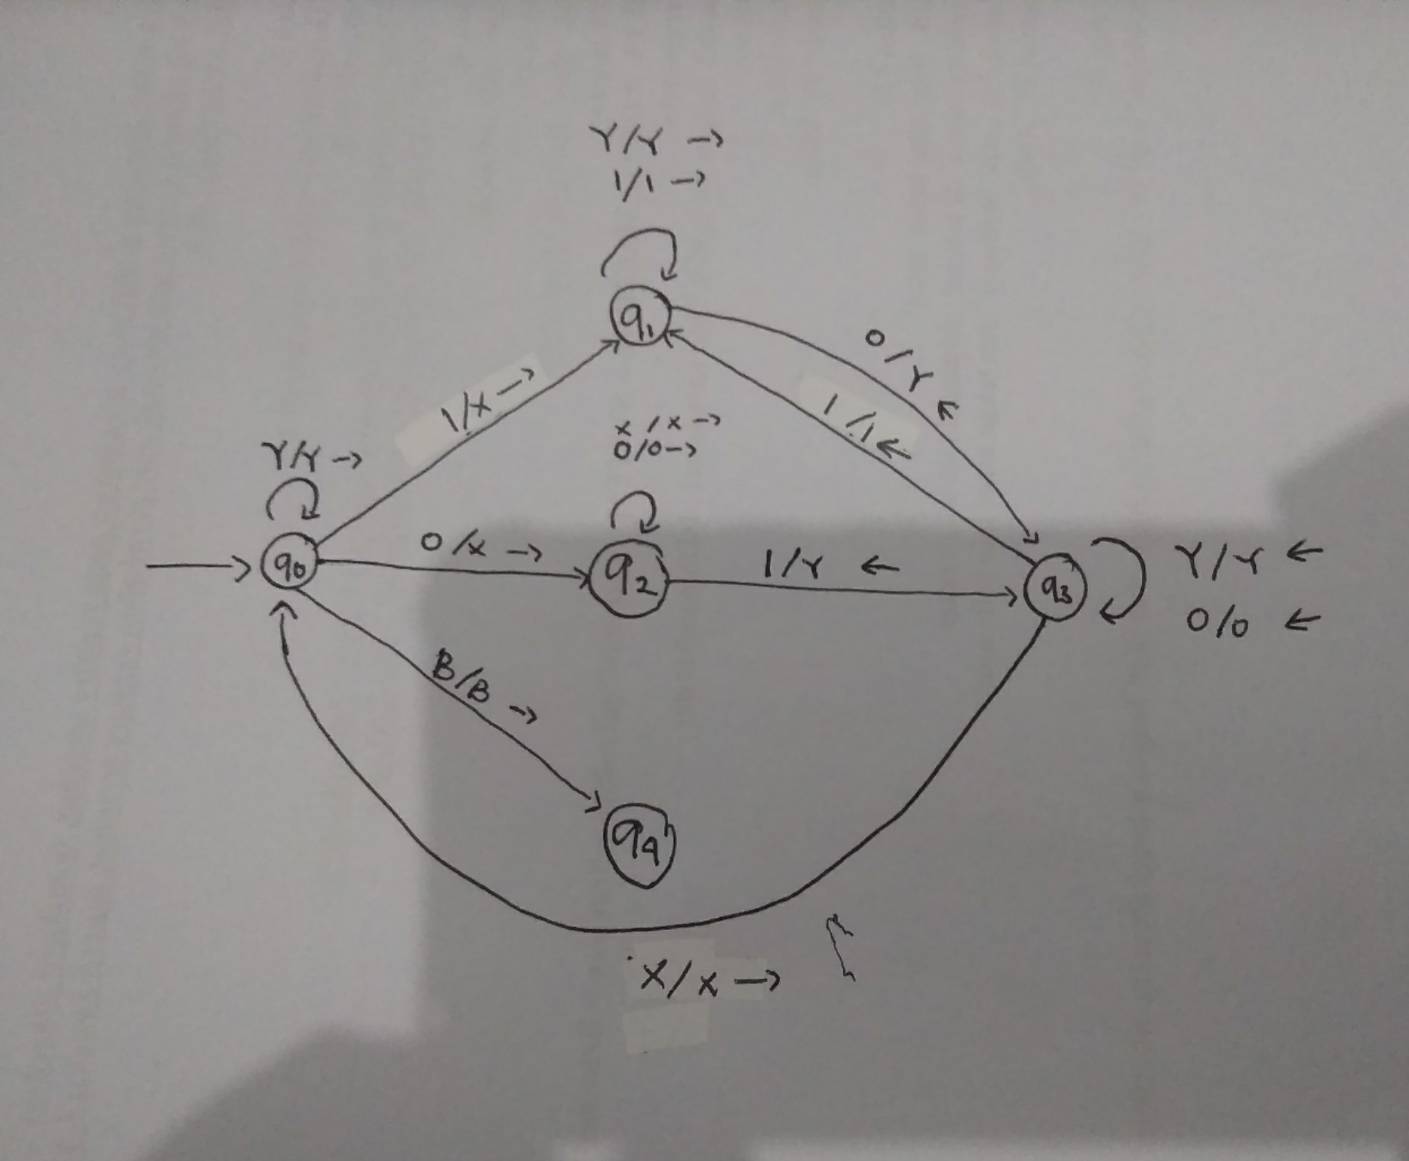 Y/Y →
1/1 →
q1
0/Y ←
1/X →
1/1 ←
x/x →
0/0 →
Y/Y →
q0
0/x →
q2
1/Y ←
q3
Y/Y ←
0/0 ←
B/B →
q4
X/x →